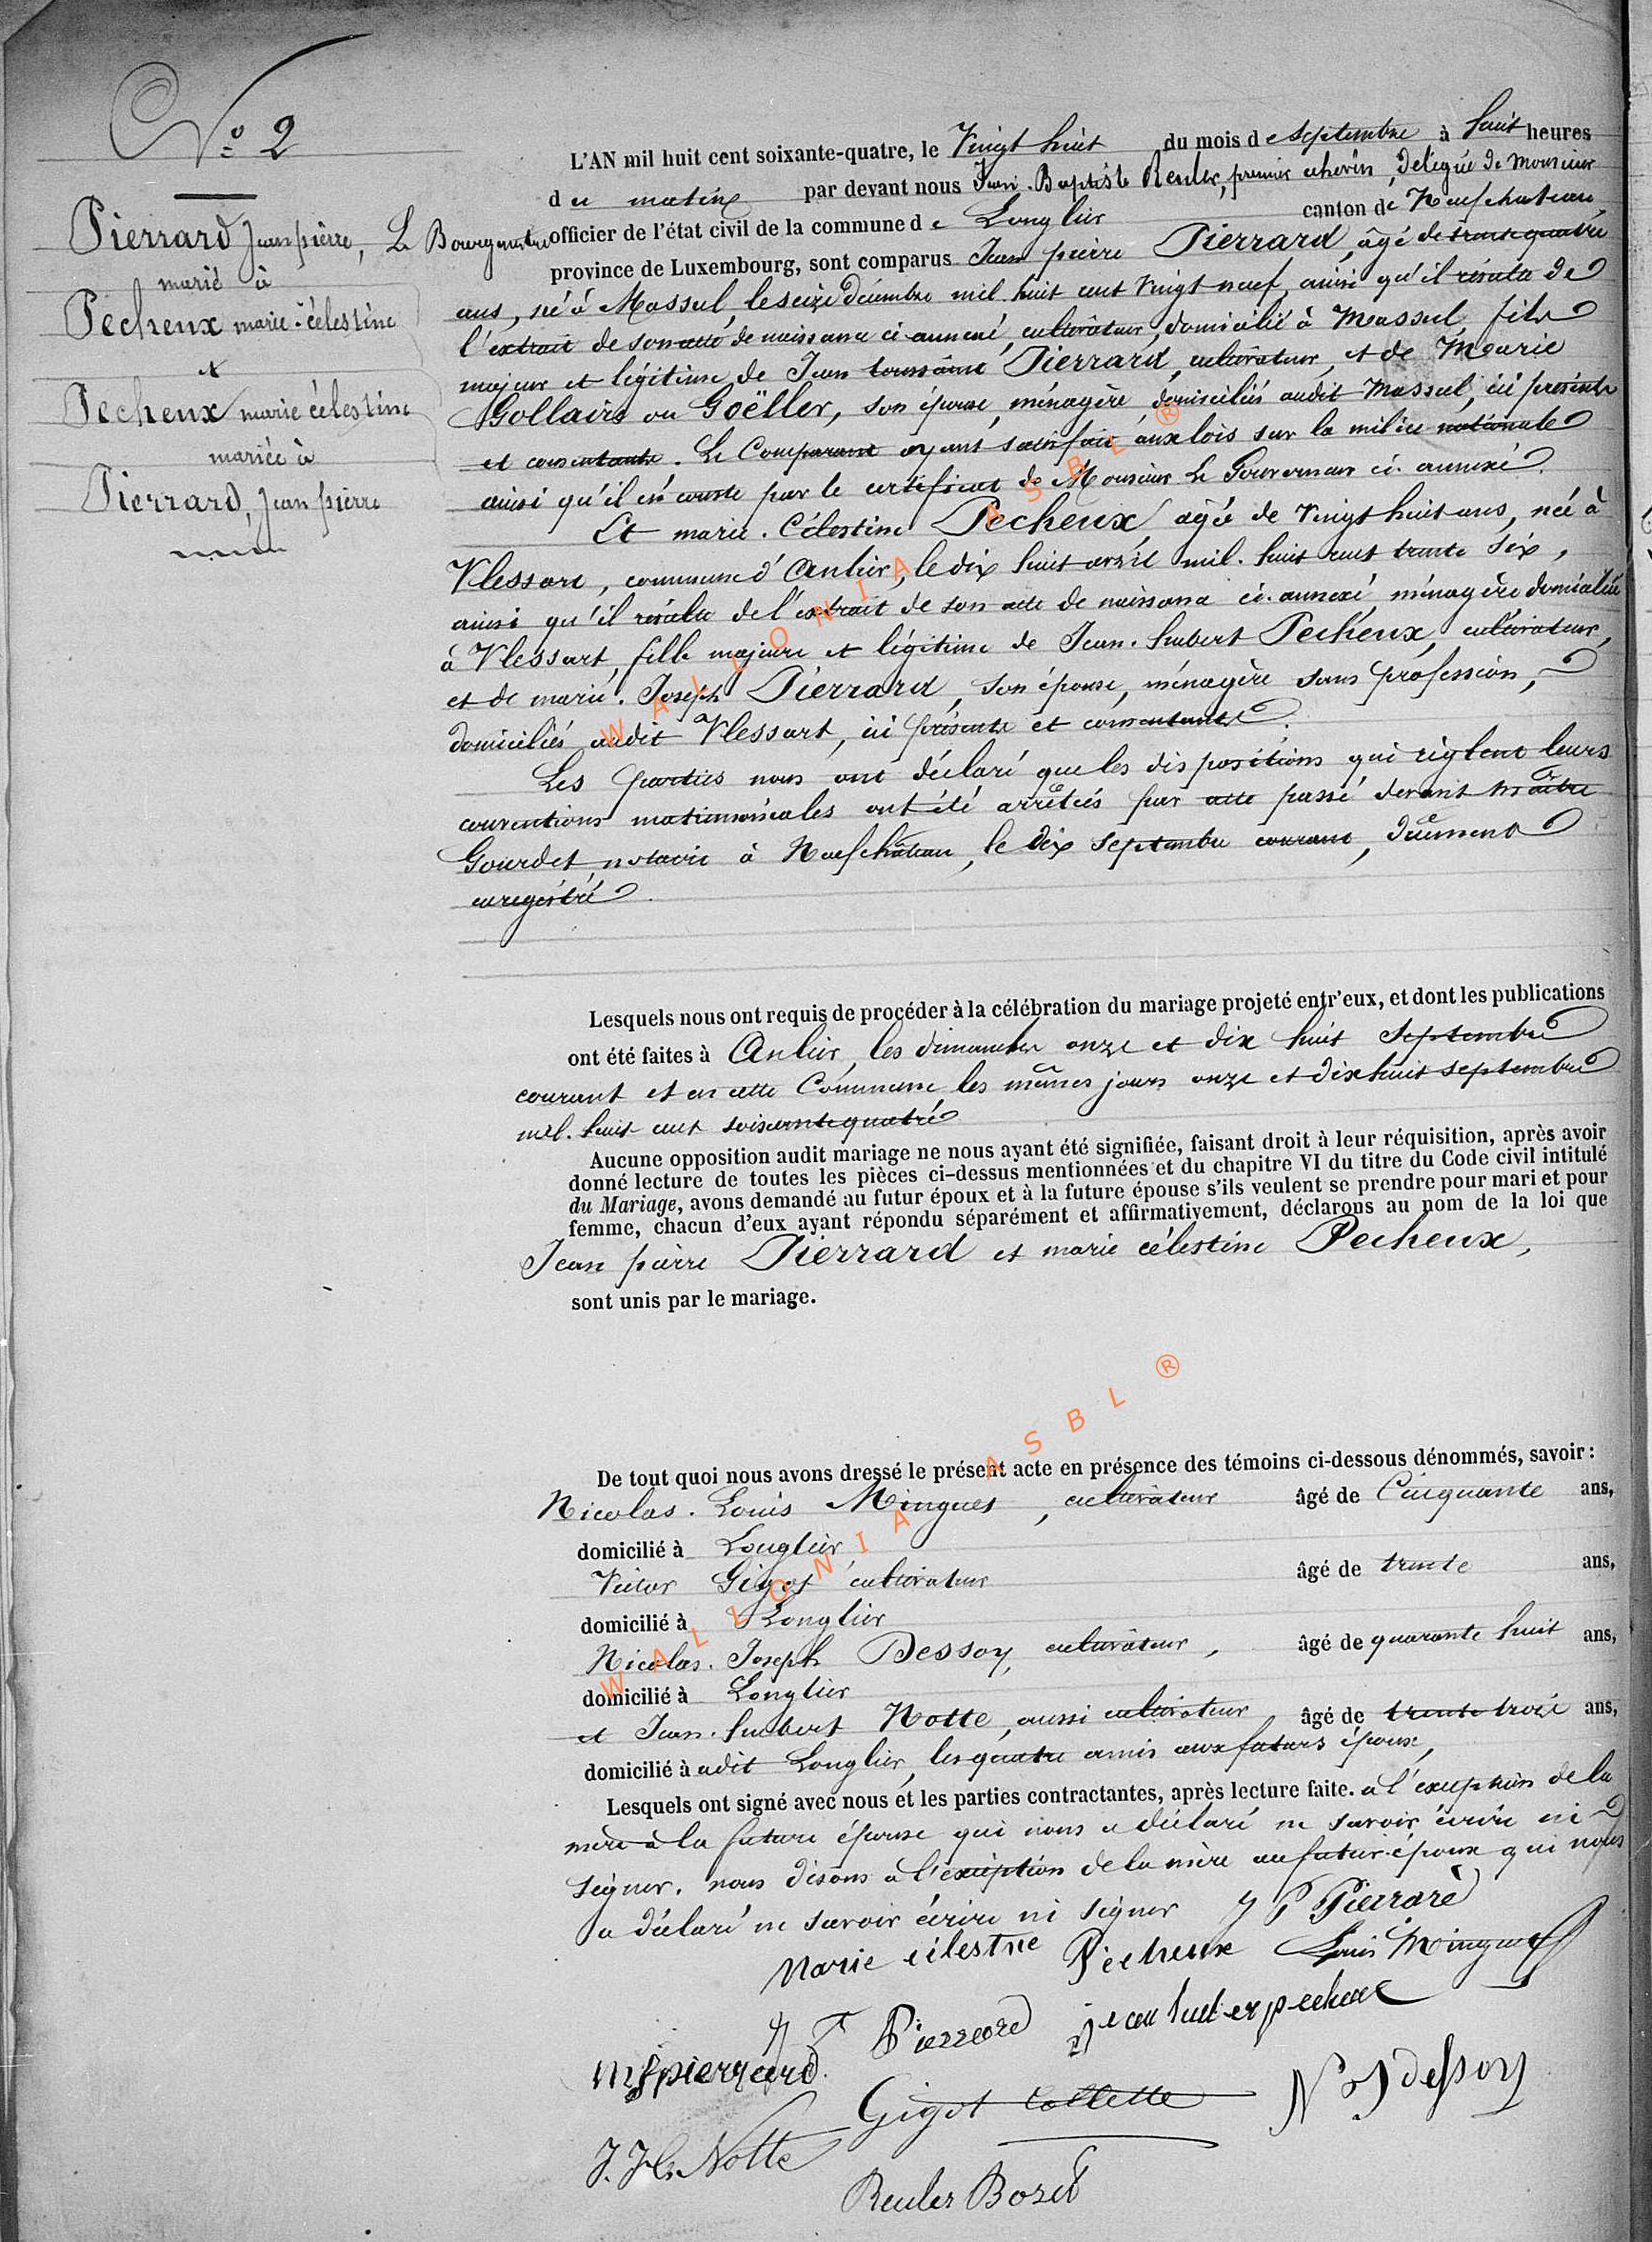 N° 2
Pierrard Jean pièrre,
marié à
Pecheux marie-célestine
et
Pecheux marie célestine
mariée à
Pierrard, Jean pièrre
L'AN mil huit cent soixante-quatre, le Vingt huit du mois de septembre à huit heures
du matin par devant nous Jean-Baptiste Reuler, premier echevin, délégué de Monsieur
Le Bourgmestre officier de l'état civil de la commune de Longlier canton de Neufchateau,
province de Luxembourg, sont comparus Jean pierre Pierrard, âgé de trente quatre
ans, né à Massul, le seize décembre mil huit cent vingt neuf, ainsi qu'il résulte de
l'extrait de son acte de naissance ci-annexé, cultivateur, domicilié à Massul, fils
majeur et légitime de Jean toussaint Pierrard, cultivateur, et de Marie
Gollaire ou Goëller, son épouse, ménagère, domiciliés audit Massul, ici présents
et consentants. Le Comparant ayant satisfait aux lois sur la milice nationale
ainsi qu'il en conste par le certificat de Monsieur Le Gouverneur ci-annexé.
Et marie-Célestine Pecheux, agée de vingt huit ans, née à
Vlessart, commune d'Anlier, le dix huit avril mil-huit cent trente six,
ainsi qu'il résulte de l'extrait de son acte de naissance ci-annexé, ménagère domiciliée
à Vlessart, fille majeure et légitime de Jean-hubert Pecheux, cultivateur,
et de marie-Joseph Pierrard, son épouse, ménagère sans proféssion,
domiciliés audit Vlessart, ici présents et consentants.
Les parties nous ont déclaré que les dispositions qui règlent leurs
conventions matrimoniales ont été arrêtées par acte passé devant maître
Gourdet notaire à Neufchâteau, le dix septembre courant, dûement
enregistré.
Lesquels nous ont requis de procéder à la célébration du mariage projeté entr'eux, et dont les publications
ont été faites à Anlier, les dimanches onze et dix huit septembre
courant et en cette Commune les mêmes jours onze et dix huit septembre
mil-huit cent soixante quatre
Aucune opposition audit mariage ne nous ayant été signifiée, faisant droit à leur réquisition, après avoir
donné lecture de toutes les pièces ci-dessus mentionnées et du chapitre VI du titre du Code civil intitulé
du Mariage, avons demandé au futur époux et à la future épouse s'ils veulent se prendre pour mari et pour
femme, chacun d'eux ayant répondu séparément et affirmativement, déclarons au nom de la loi que
Jean pièrre Pierrard et marie célestine Pecheux,
sont unis par le mariage.
De tout quoi nous avons dressé le présent acte en présence des témoins ci-dessous dénommés, savoir :
Nicolas-Louis Mingues, cultivateur âgé de Cinquante ans,
domicilié à Longlier
Victor Gigot cultivateur âgé de trente ans,
domicilié à Longlier
Nicolas-Joseph Dessoy, cultivateur, âgé de quarante huit ans,
domicilié à Longlier
et Jean-hubert Notte, aussi cultivateur âgé de trente trois ans,
domicilié à udit Longlier, les quatre amis aux futurs époux,
Lesquels ont signé avec nous et les parties contractantes, après lecture faite. a l'exception de la
mère à la future épouse qui nous a déclaré ne savoir écrire ni
signer. nous disons a l'exception de la mère au futur époux qui nous
a déclaré ne savoir écrire ni signer J P Pierrard
Marie célestine Pecheux Louis Mingues
J T Pierrard jean huber pecheux
m j pierrard
Gigot Collette N J dessoy
J. H. Notte
Reuler Bozet
WALLONIA ASBL ®
WALLONIA ASBL ®